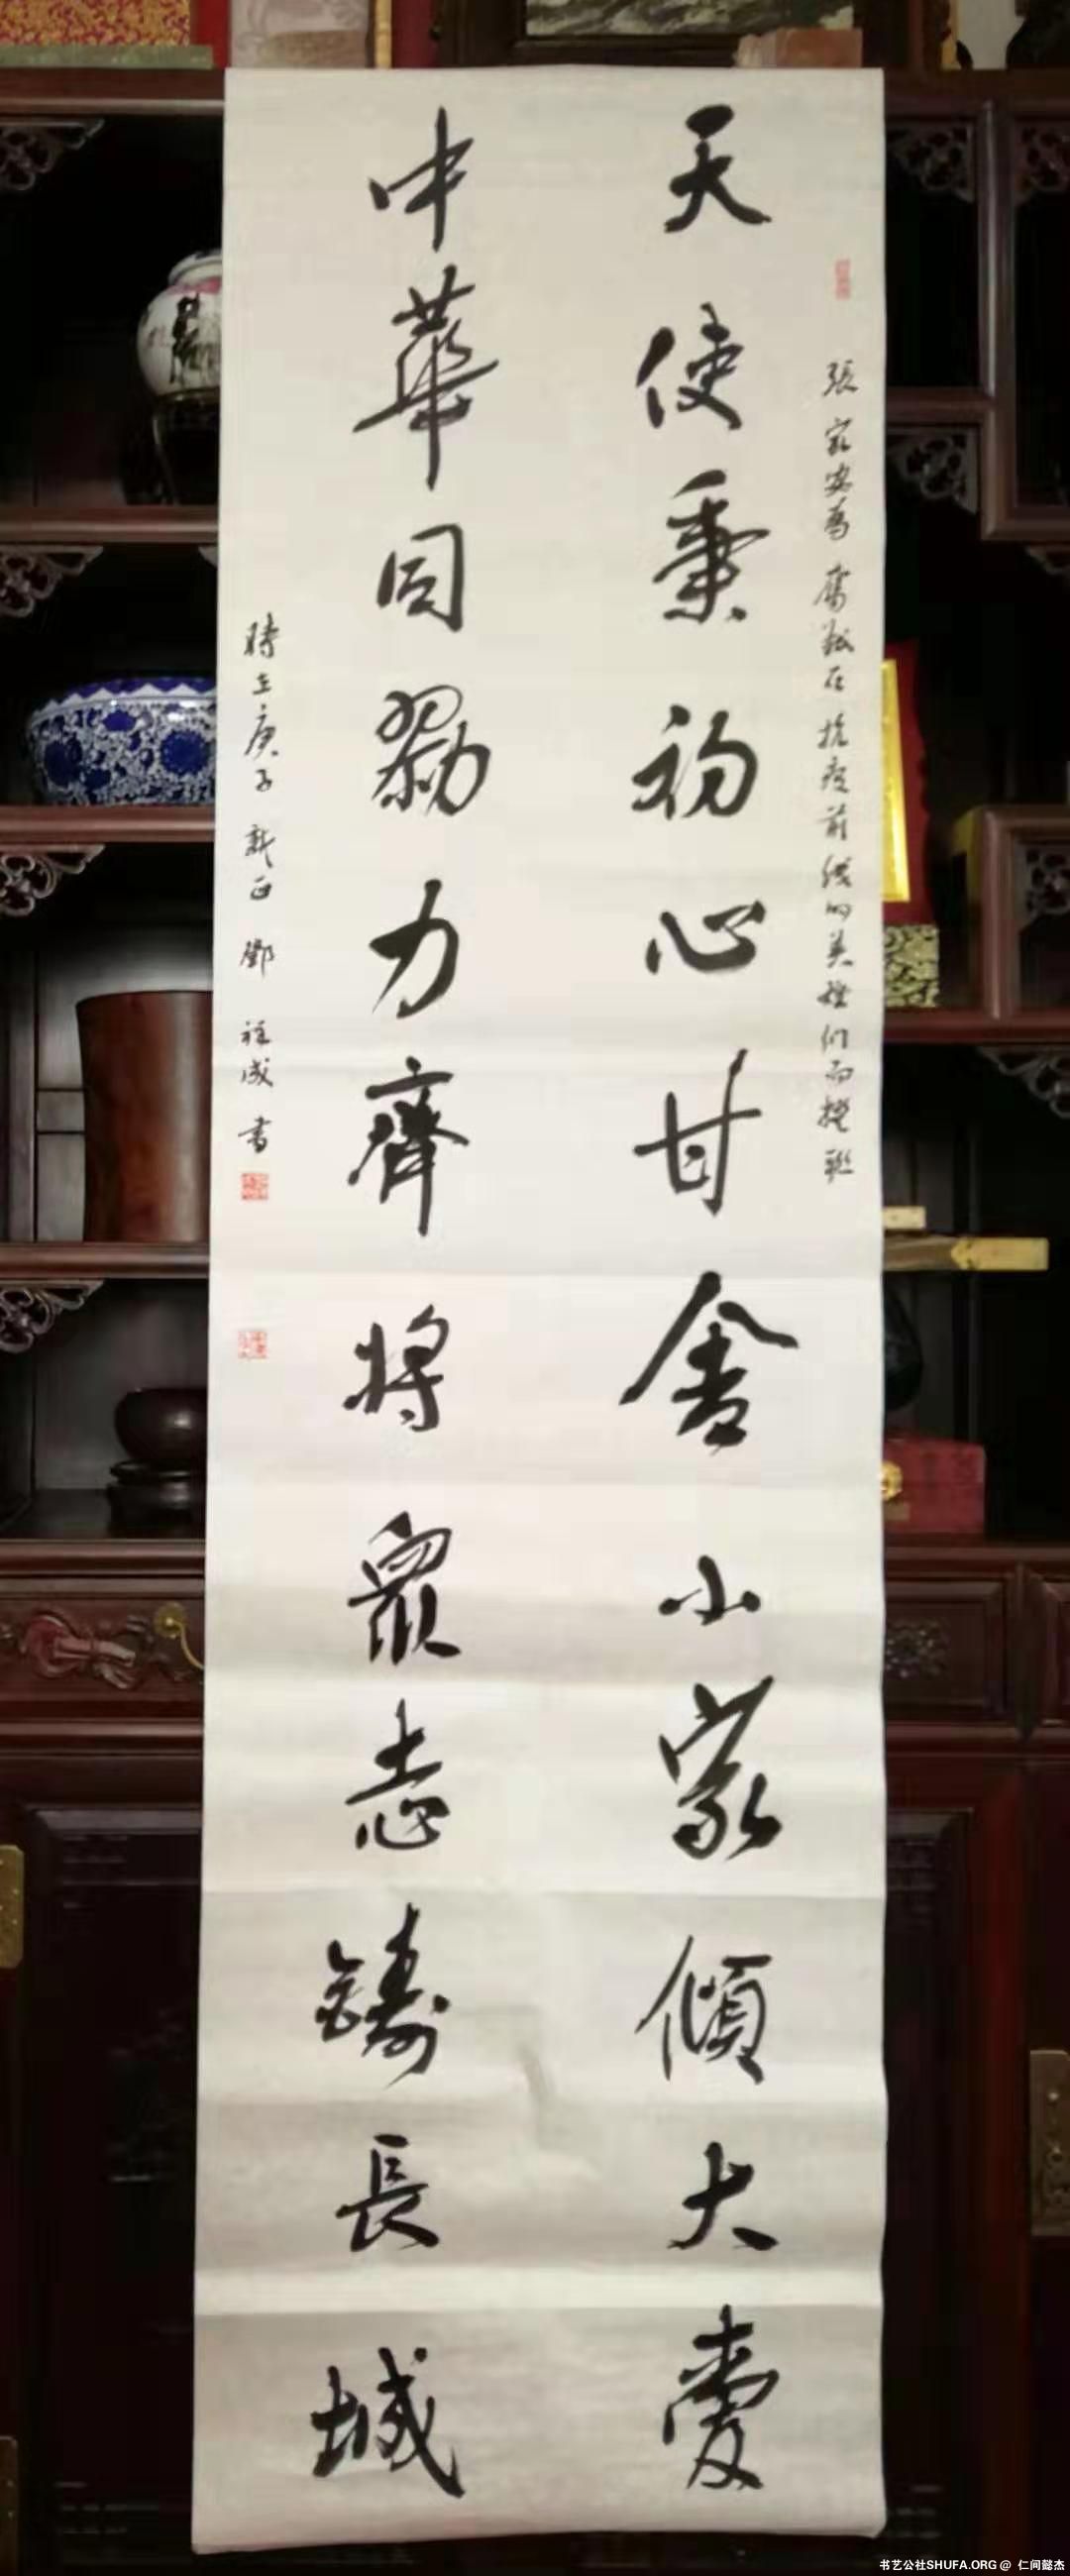 張家安為奮戰在抗疫前线的英雄们而撰联
天使秉初心甘舍小家傾大愛
中華同勠力齊将眾志鑄長城
時在庚子新正鄧祥成書
书艺公社SHUFA.ORG @ 仁间懿杰